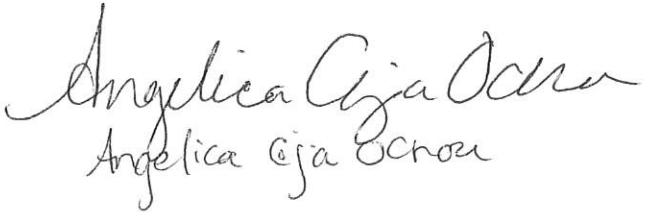 Angelica Cija Ochoa
Angelica Cija Ochoa